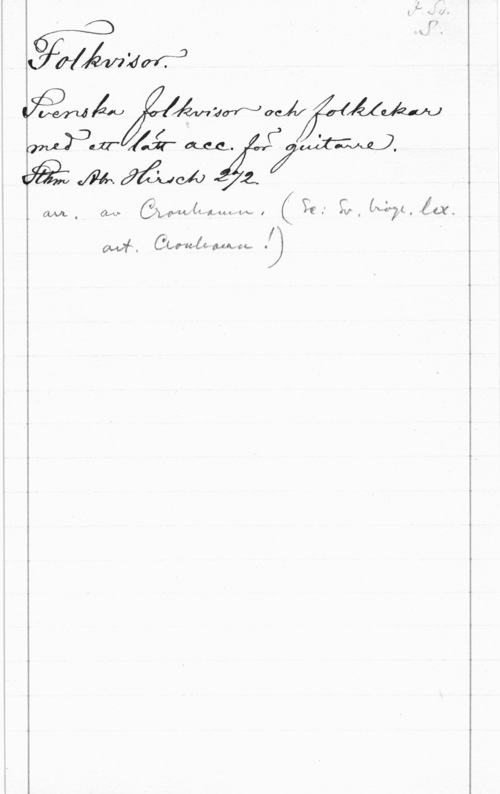 F. Sv.
S.
Folkvisor.
Svenska folkvisor och folklekar
med ett lätt acc. för guitarre.
Sthm Abr. Hirsch 272.
arr. av Cronhamn. (Se: Sv. biogr. lex.
art. Cronhamn!)